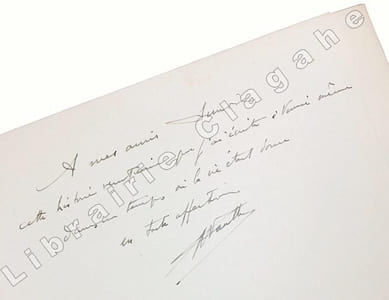 A mes amis
cette histoire vénitienne que j'ai écrite à Venise même
temps où la vie était douce
en toute affection
Librairie Clagahe